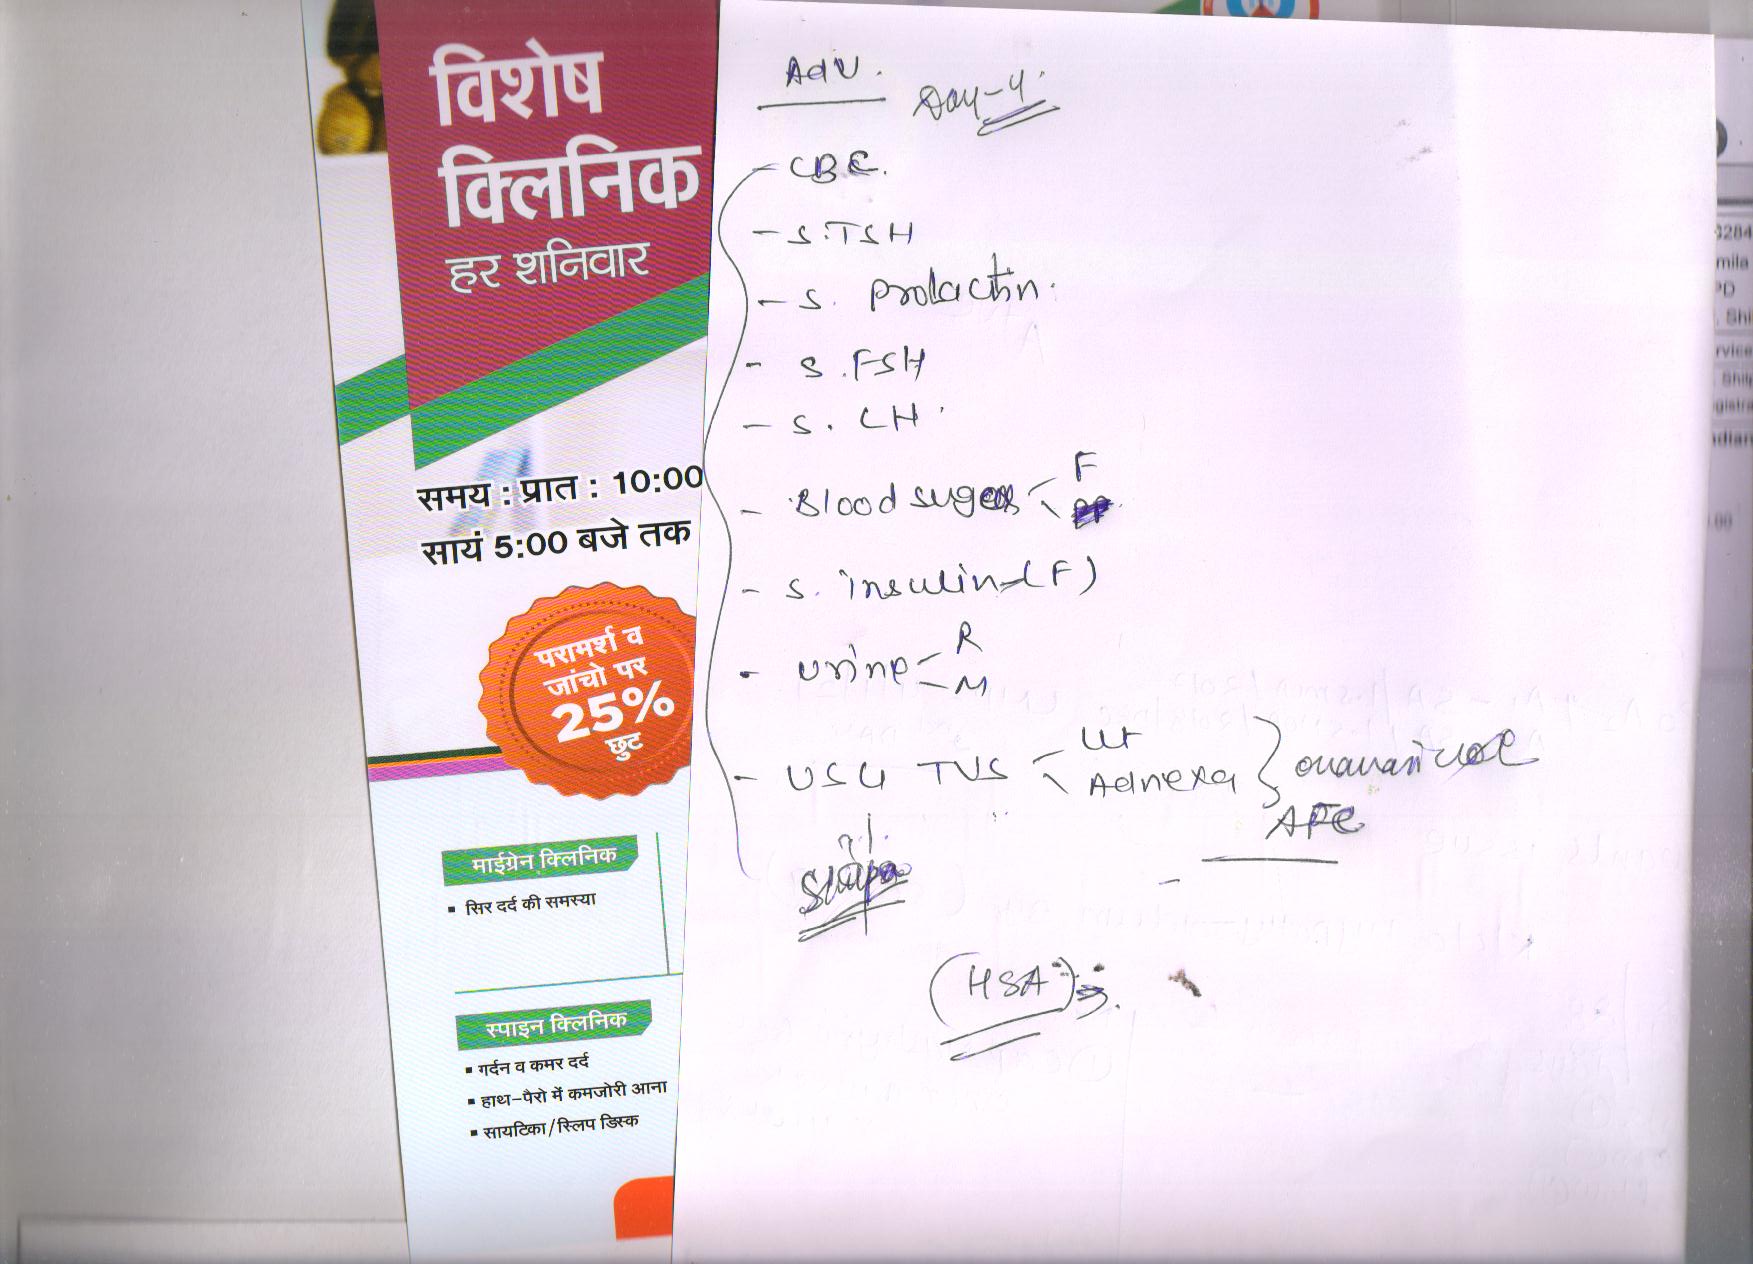 विशेष
क्लिनिक
हर शनिवार
समय : प्रात : 10:00
सायं 5:00 बजे तक
परामर्श व
जांचो पर
25%
छुट
माईग्रेन क्लिनिक
▪ सिर दर्द की समस्या
स्पाइन क्लिनिक
▪ गर्दन व कमर दर्द
▪ हाथ-पैरो में कमजोरी आना
▪ सायटिका/स्लिप डिस्क
Adv.
Day-4.
- CBC.
- S.TSH
- S. prolactin.
- S.FSH
- S. LH.
- Blood sugar F
PP
- S. insulin (F)
- Urine R
M
- USG TVS Ut
Adnexa
AFC
(HSA)
3284
mila
PD
. Shi
rvice
Shilp
gistra
ndian
.00